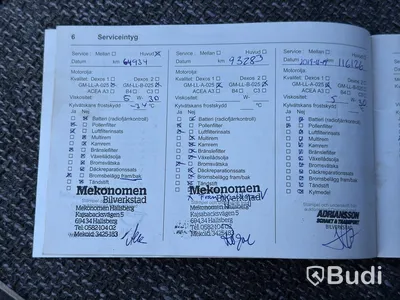 6 Serviceintyg
Service : Mellan Huvud
Datum km 64934
Motorolja
Kvalitet: Dexos 1 Dexos 2
GM-LL-A-025 GM-LL-B-025
ACEA A3 B4 C3
Viskositet 5 - 30
Kylvätskans fryskydd °C
Ja Nej
Batteri (radiofjärrkontroll)
Pollenfilter
Luftfilterinsats
Multirem
Kamrem
Bränslefilter
Växellådsolja
Bromsvätska
Däckreparationssats
Bromsbelägg fram/bak
Tändstift
Mekonomen
Bilverkstad
Mekonomen Hallsberg
Kajsabacksvägen 5
69434 Hallsberg
Tel. 0582-104 02
Service : Mellan Huvud
Datum km 93283
Motorolja
Kvalitet: Dexos 1 Dexos 2
GM-LL-A-025 GM-LL-B-025
ACEA A3 B4 C3
Viskositet 5 W- 30
Kylvätskans fryskydd °C
Ja Nej
Batteri (radiofjärrkontroll)
Pollenfilter
Luftfilterinsats
Multirem
Kamrem
Bränslefilter
Växellådsolja
Bromsvätska
Däckreparationssats
Bromsbelägg fram/bak
Tändstift
Mekonomen
Bilverkstad
Mekonomen Hallsberg
Kajsabacksvägen 5
69434 Hallsberg
Tel. 0582-104 02
Service : Mellan Huvud
Datum km
Motorolja
Kvalitet: Dexos 1 Dexos 2
GM-LL-A-025 GM-LL-B-025
ACEA A3 B4 C3
Viskositet 5 - 30
Kylvätskans fryskydd
Ja Nej
Batteri (radiofjärrkontroll)
Pollenfilter
Luftfilterinsats
Multirem
Kamrem
Bränslefilter
Växellådsolja
Bromsvätska
Däckreparationssats
Bromsbelägg fram/bak
Tändstift
ADRIANSSON
Budi